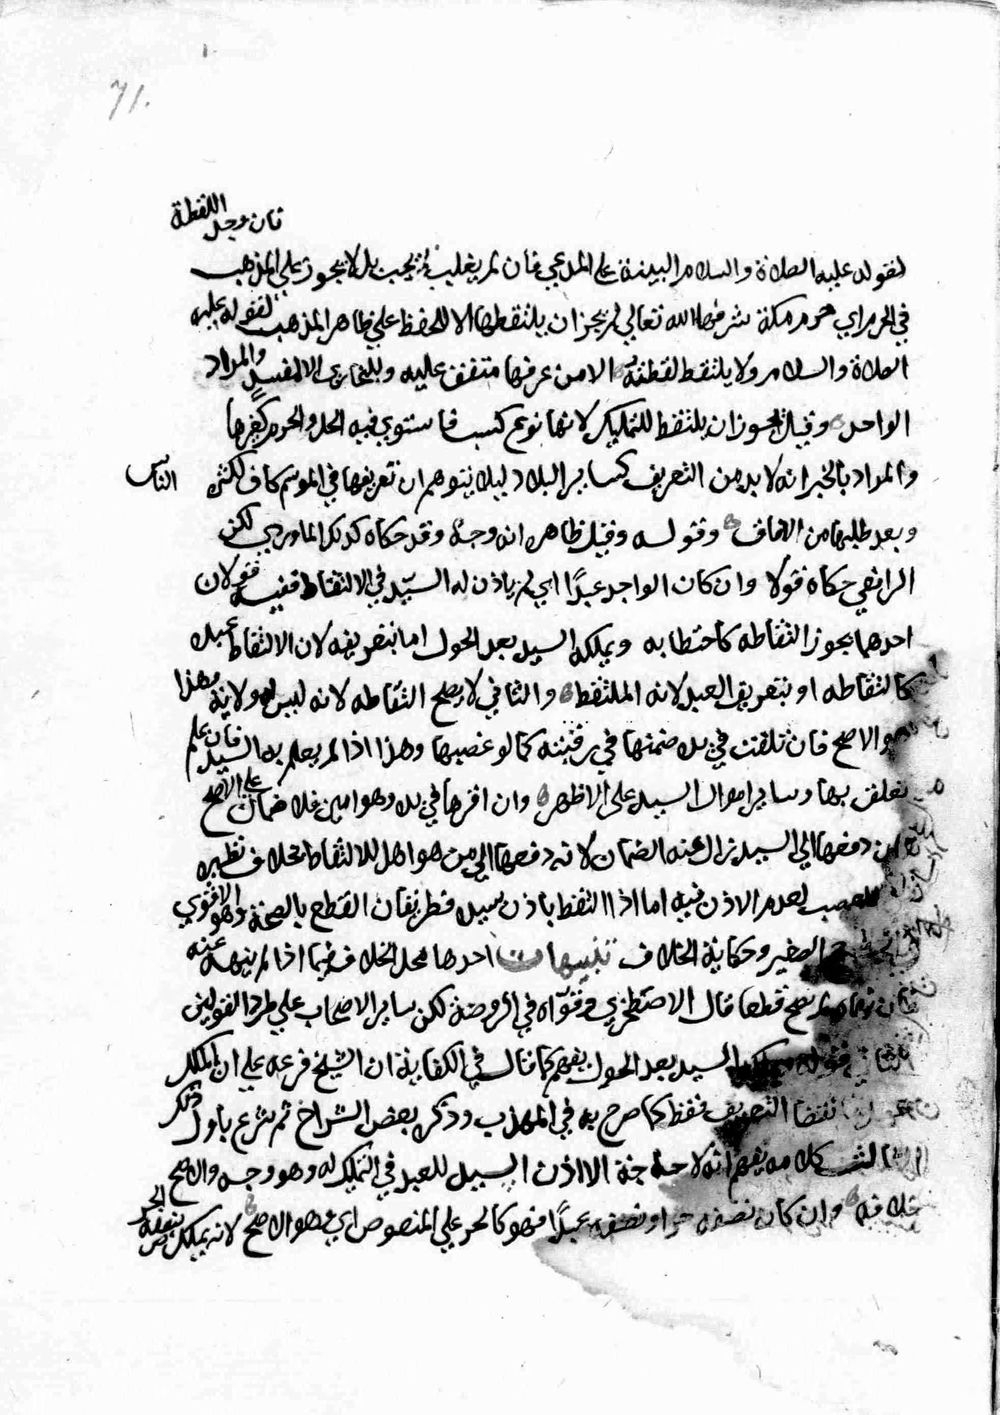 71.
فان وجد اللقطة
لقوله عليه الصلاة والسلام البينة على المدعي فان لم يغلب لم يجب بل لا يجوز على المذهب
في الحرم اي حرم مكة شرفها الله تعالى لم يجز ان يلتقطها الا للحفظ على ظاهر المذهب لقوله عليه
الصلاة والسلام ولا يلتقط لقطته الا من عرفها متفق عليه وللبخاري الا لمنشد والمراد
الواحد وقيل يجوز ان يلتقط للتمليك لانها نوع كسب فاستوي فيه الحل والحرم كغيرها
والمراد بالخبر انه لا بد من التعريف كساير البلاد ليلا يتوهم ان تعريفها في الموسم كاف لكثرة الناس
وبعد طلبها من الافاق وقوله وقيل ظاهره انه وجه وقد حكاه كذلك الماوردي لكن
الرافعي حكاه قولا وان كان الواجد عبدا اي لم ياذن له السيد في الالتقاط ففيه قولان
احدهما يجوز التقاطه كاحتطابه ويملكه السيد بعد الحول اما بتعريفه لان التقاط عبده
كالتقاطه او بتعريف العبد لانه الملتقط والثاني لا يصح التقاطه لانه ليس له ولاية وهذا
هو الاصح فان تلفت في يده ضمنها في رقبته كما لو غصبها وهذا اذا لم يعلم به السيد فان علم
تعلق بها وساير اموال السيد على الاظهر وان اقرها في يده وهو امين فلا ضمان على الاصح
دفعها الى السيد زال عنه الضمان لانه دفعها الى من هو اهل للالتقاط بخلاف نظيره
الغصب لعدم الاذن فيه اما اذا التقط باذن سيده فطريقان القطع بالصحة وهو الاقوي
الصغير وحكاية الخلاف تنبيهات احدها محل الخلاف فيما اذا لم ينهه عنه
فان نهاه لم يصح قطعا قال الاصطخري وقواه في الروضة لكن ساير الاصحاب على طرد القولين
الثاني قوله السيد بعد الحول يفهم كما قال في الكفاية ان الشيخ فرعه على ان الملك
التعريف فقط كما صرح به في المهذب وذكر بعض الشراخ ثم شرع باول ذلك
الثالث كلامه يفهم انه لا حاجة الا اذن السيد للعبد في التمليك له وهو وجه والاصح
خلافه وان كان نصفه حرا ونصفه عبدا فهو كالحر على المنصوص اي وهو الاصح لانه يملك